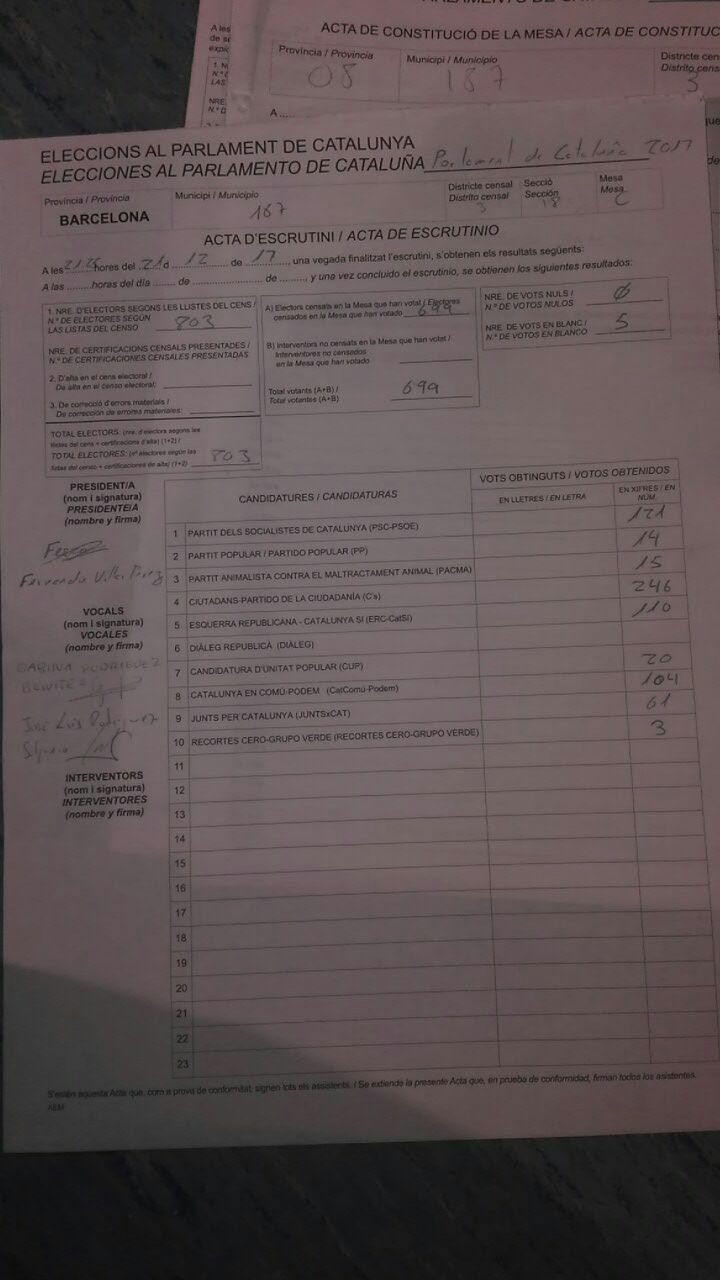 ACTA DE CONSTITUCIÓ DE LA MESA / ACTA DE CONSTITUC
Província / Provincia
08
Municipi / Municipio
187
Districte cen
Distrito cens
3
A
ELECCIONS AL PARLAMENT DE CATALUNYA
ELECCIONES AL PARLAMENTO DE CATALUÑA Parlament de Cataluña 2017
Província / Provincia
BARCELONA
Municipi / Municipio
187
Districte censal
Distrito censal
3
Secció
Sección
18
Mesa
Mesa
C
ACTA D'ESCRUTINI / ACTA DE ESCRUTINIO
A les hores del 21 d 12 de 17, una vegada finalitzat l'escrutini, s'obtenen els resultats següents:
A las ........ horas del día ....... de .................... de ........, y una vez concluido el escrutinio, se obtienen los siguientes resultados:
1. NRE. D'ELECTORS SEGONS LES LLISTES DEL CENS /
N.º DE ELECTORES SEGÚN
LAS LISTAS DEL CENSO 803
NRE. DE CERTIFICACIONS CENSALS PRESENTADES /
N.º DE CERTIFICACIONES CENSALES PRESENTADAS
2. D'alta en el cens electoral /
De alta en el censo electoral:
3. De correcció d'errors materials /
De corrección de errores materiales:
TOTAL ELECTORS: (nre. d'electors segons les
llistes del cens + certificacions d'alta) (1+2) /
TOTAL ELECTORES: (nº electores según las
listas del censo + certificaciones de alta) (1+2) 803
A) Electors censats en la Mesa que han votat / Electores
censados en la Mesa que han votado 699
B) Interventors no censats en la Mesa que han votat /
Interventores no censados
en la Mesa que han votado
Total votants (A+B) /
Total votantes (A+B) 699
NRE. DE VOTS NULS /
N.º DE VOTOS NULOS 0
NRE. DE VOTS EN BLANC /
N.º DE VOTOS EN BLANCO 5
PRESIDENT/A
(nom i signatura)
PRESIDENTE/A
(nombre y firma)
VOCALS
(nom i signatura)
VOCALES
(nombre y firma)
RODRIGUEZ
José Luis Rodriguez
INTERVENTORS
(nom i signatura)
INTERVENTORES
(nombre y firma)
CANDIDATURES / CANDIDATURAS
VOTS OBTINGUTS / VOTOS OBTENIDOS
EN LLETRES / EN LETRA
EN XIFRES / EN NÚM.
1 PARTIT DELS SOCIALISTES DE CATALUNYA (PSC-PSOE) 121
2 PARTIT POPULAR / PARTIDO POPULAR (PP) 14
3 PARTIT ANIMALISTA CONTRA EL MALTRACTAMENT ANIMAL (PACMA) 15
4 CIUTADANS-PARTIDO DE LA CIUDADANÍA (C's) 246
5 ESQUERRA REPUBLICANA - CATALUNYA SÍ (ERC-CatSí) 110
6 DIÀLEG REPUBLICÀ (DIÀLEG)
7 CANDIDATURA D'UNITAT POPULAR (CUP) 20
8 CATALUNYA EN COMÚ-PODEM (CatComú-Podem) 104
9 JUNTS PER CATALUNYA (JUNTSxCAT) 61
10 RECORTES CERO-GRUPO VERDE (RECORTES CERO-GRUPO VERDE) 3
11
12
13
14
15
16
17
18
19
20
21
22
23
S'estén aquesta Acta que, com a prova de conformitat, signen tots els assistents. / Se extiende la presente Acta que, en prueba de conformidad, firman todos los asistentes.